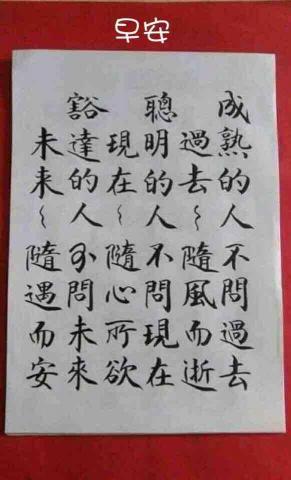 早安
成熟的人不問過去
過去~隨風而逝
聰明的人不問現在
現在~隨心所欲
豁達的人不問未來
未来~隨遇而安